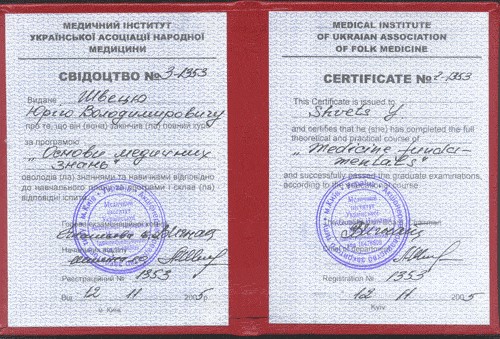 МЕДИЧНИЙ ІНСТИТУТ
УКРАЇНСЬКОЇ АСОЦІАЦІЇ НАРОДНОЇ
МЕДИЦИНИ
СВІДОЦТВО № З-1353
Видане Швецю
Юрію Володимировичу
про те, що він (вона) закінчив (ла) повний курс
за програмою
„Основи медичних
знань"
оволодів (ла) знаннями та навичками відповідно
до навчального плану
Реєстраційний № 1353
Від 12 11 2005р.
м. Київ
MEDICAL INSTITUTE
OF UKRAIAN ASSOCIATION
OF FOLK MEDICINE
CERTIFICATE № 2-1353
This Certificate is issued to
Shvets Y
and certifies that he (she) has completed the full
theoretical and practical course of
„Medicine funda-
mentals"
and successfully passed the graduate examinations,
according to the course
Медичний
інститут
Української
Registration № 1353
12 11 2005
Kyiv